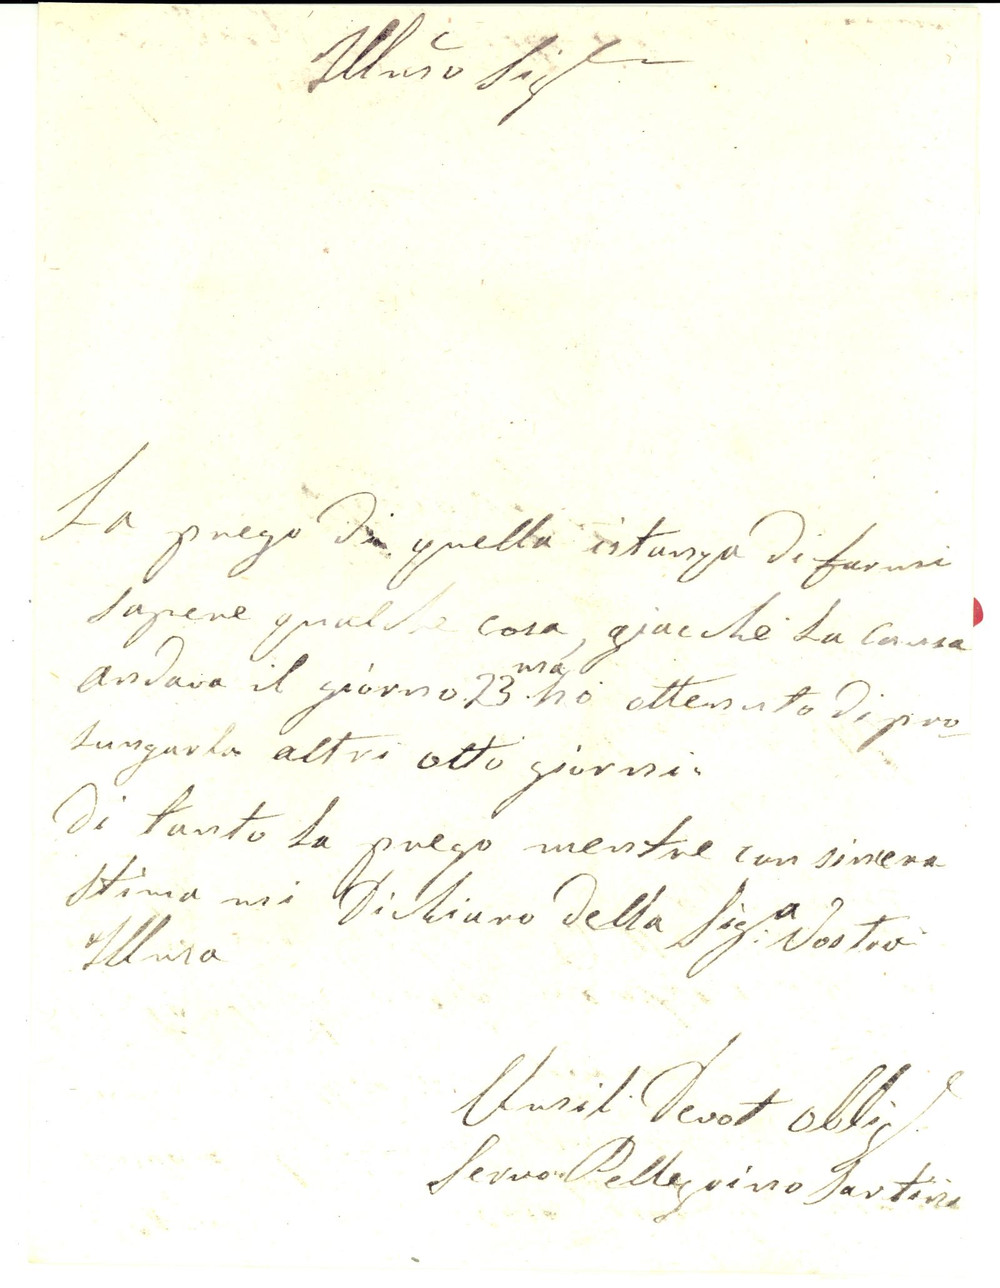 Illmo Sigr
La prego di quella istanza di farmi
sapere qualche cosa, giacchè la causa
andava il giorno 23 ma hò ottenuto di pro-
lungarla altri otto giorni.
Di tanto la prego mentre con sincera
stima mi dichiaro della Sig.a Vostra
Illma
Umil. Devot Obblig
Servo Pellegrino Sartini